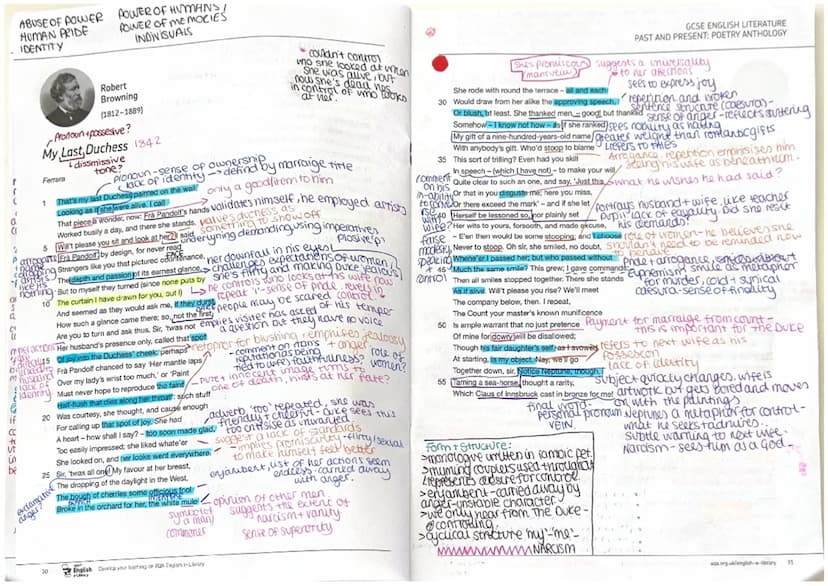 ABUSE OF POWER
HUMAN PRIDE
IDENTITY
POWER OF HUMANS/
POWER OF MEMORIES
INDIVIDUALS
couldn't control
who she looked at when
she was alive, but
now she's dead, he's
in control of who looks
at her.
Robert
Browning
(1812–1889)
Pronoun + possesive?
My Last Duchess 1842
dissmissive
tone?
pronoun - sense of ownership
lack of identity
defined by marraige title
Ferrara
1 That's my last Duchess painted on the wall,
only a good item to him
Looking as if she were alive. I call
That piece a wonder, now: Frà Pandolf's hands
validates himself, he employed artists
Worked busily a day, and there she stands.
values duchess as
something to show off
5 Will't please you sit and look at her? I said
undergning demanding, using imperatives
plosive 'p'?
'Frà Pandolf' by design, for never read
Strangers like you that pictured countenance,
her downfall in his eyes
The depth and passion of its earnest glance,
challenges expectations of women
she's flirty and making him jealous
But to myself they turned (since none puts by
he controls who looks at his wife now
10 The curtain I have drawn for you, but I)
sense of pride, revels in
control
And seemed as they would ask me, if they durst,
people may be scared of his temper
How such a glance came there; so, not the first
Are you to turn and ask thus. Sir, 'twas not
implies visitor has asked
a question but they have no voice
Her husband's presence only, called that spot
15 Of joy into the Duchess' cheek: perhaps
metaphor for blushing, emphises jealousy
+ anger
Frà Pandolf chanced to say 'Her mantle laps
common man's
reputation being
tied to wife's faithfulness?
role of
women?
Over my lady's wrist too much,' or 'Paint
Must never hope to reproduce the faint
pure + innocent image turns to
one of death, hints at her fate?
Half-flush that dies along her throat': such stuff
20 Was courtesy, she thought, and cause enough
For calling up that spot of joy. She had
adverb 'too' repeated, she was
friendly + cheerful - duke sees this
to criticise as unwanted
A heart – how shall I say? – too soon made glad,
Too easily impressed; she liked whate'er
suggest a lack of standards
implies promiscuity - flirty/sexual
to make himself feel better
She looked on, and her looks went everywhere.
25 Sir, 'twas all one! My favour at her breast,
enjambent, list of her actions seem
endless - carried away
with anger.
The dropping of the daylight in the West,
The bough of cherries some officious fool
Broke in the orchard for her, the white mule
opinion of other men
suggests the extent of
narcism + vanity
sense of superiority
symbol of
a man/
commoner
30
Develop your learning on AQA English e-Library
GCSE ENGLISH LITERATURE
PAST AND PRESENT: POETRY ANTHOLOGY
she's promiscous
(man's view)
suggests a universality
to her affections
She rode with round the terrace – all and each
sees to express joy
30 Would draw from her alike the approving speech,
repetition and broken
sentence structure (caesura) -
sense of anger - reflects stuttering
Or blush, at least. She thanked men, – good! but thanked
Somehow – I know not how – as if she ranked
sees nobility as having
greater weight than romantic gifts
My gift of a nine-hundred-years-old name
refers to titles
With anybody's gift. Who'd stoop to blame
35 This sort of trifling? Even had you skill
Arrogance, repetition emphisises him
seeing his wife as beneath him.
In speech – (which I have not) – to make your will
Quite clear to such an one, and say, 'Just this
what he wishes he had said?
Or that in you disgusts me; here you miss,
Or there exceed the mark' – and if she let
portrays husband + wife, like teacher
pupil. lack of equality. Did she resist
his demands?
40 Herself be lessoned so, nor plainly set
Her wits to yours, forsooth, and made excuse,
– E'en then would be some stooping; and I choose
role of women - he believes she
shouldn't need to be reminded how
to behave
Never to stoop. Oh sir, she smiled, no doubt,
Whene'er I passed her; but who passed without
45 Much the same smile? This grew; I gave commands;
Then all smiles stopped together. There she stands
Euphemism, smile as metaphor
for murder, cold + cynical
caesura - sense of finality
As if alive. Will't please you rise? We'll meet
The company below, then. I repeat,
The Count your master's known munificence
50 Is ample warrant that no just pretence
Payment for marriage from count -
this is important for the Duke
Of mine for dowry will be disallowed;
Though his fair daughter's self, as I avowed
refers to next wife as his
possession
lack of identity
At starting, is my object. Nay, we'll go
Together down, sir. Notice Neptune, though,
55 Taming a sea-horse, thought a rarity,
Subject quickly changes, wife is
artwork but gets bored and moves
on with the paintings
Which Claus of Innsbruck cast in bronze for me!
final word -
personal pronoun
VEIN.
Neptunes a metaphor for control -
what he seeks + admires.
subtle warning to next wife.
Narcism - sees him as a God -
Form + Structure:
> monologue written in iambic pet.
> rhyming couplets used throughout
represents desire for control.
> enjambent - carried away by
anger - unstable character.
> we only hear from the Duke -
controlling.
> cyclical structure 'my' - 'me' -
NARCISM
aqa.org.uk/english-e-library
31